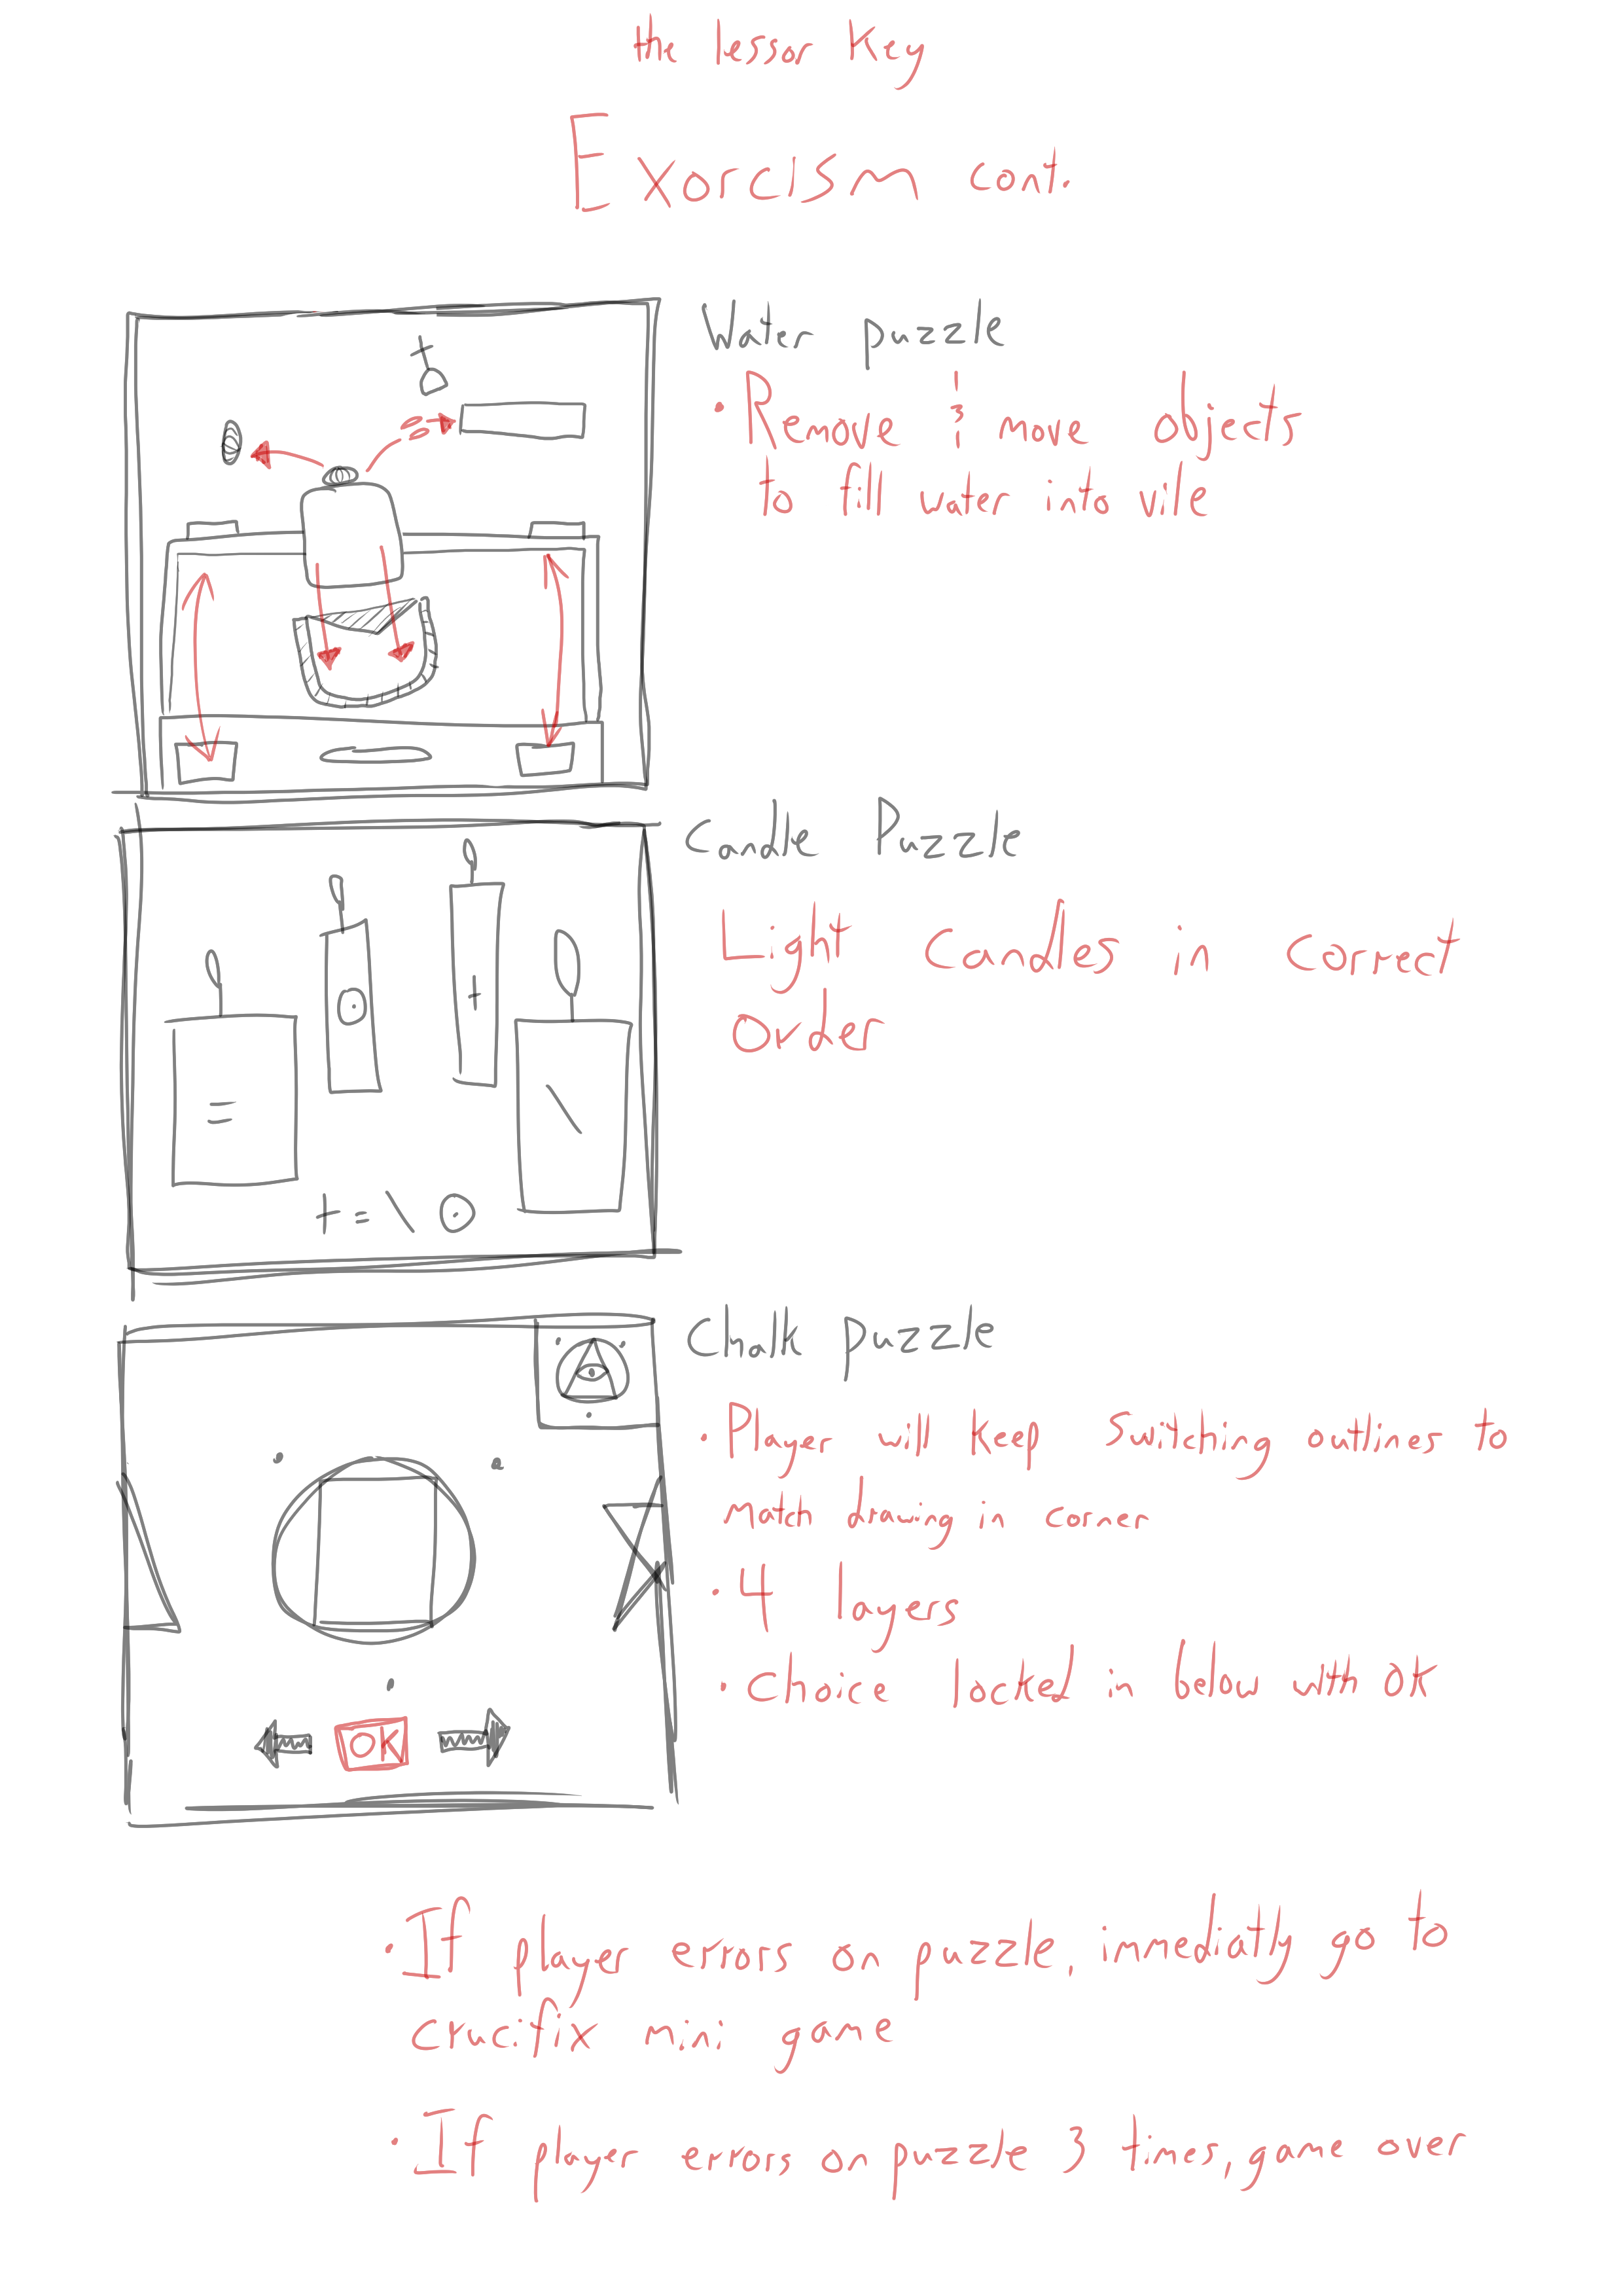 the lessor Key
Exorcism cont.
Water puzzle
• Remove & move objects
to fill water into vile
Candle Puzzle
Light candles in correct
order
+ = \ ⊙
Chalk puzzle
• Player will keep switching outlines to
match drawing in corner
• 4 layers
• choice locked in below with OK
OK
• If player errors on puzzle, immediatly go to
crucifix mini game
• If player errors on puzzle 3 times, game over